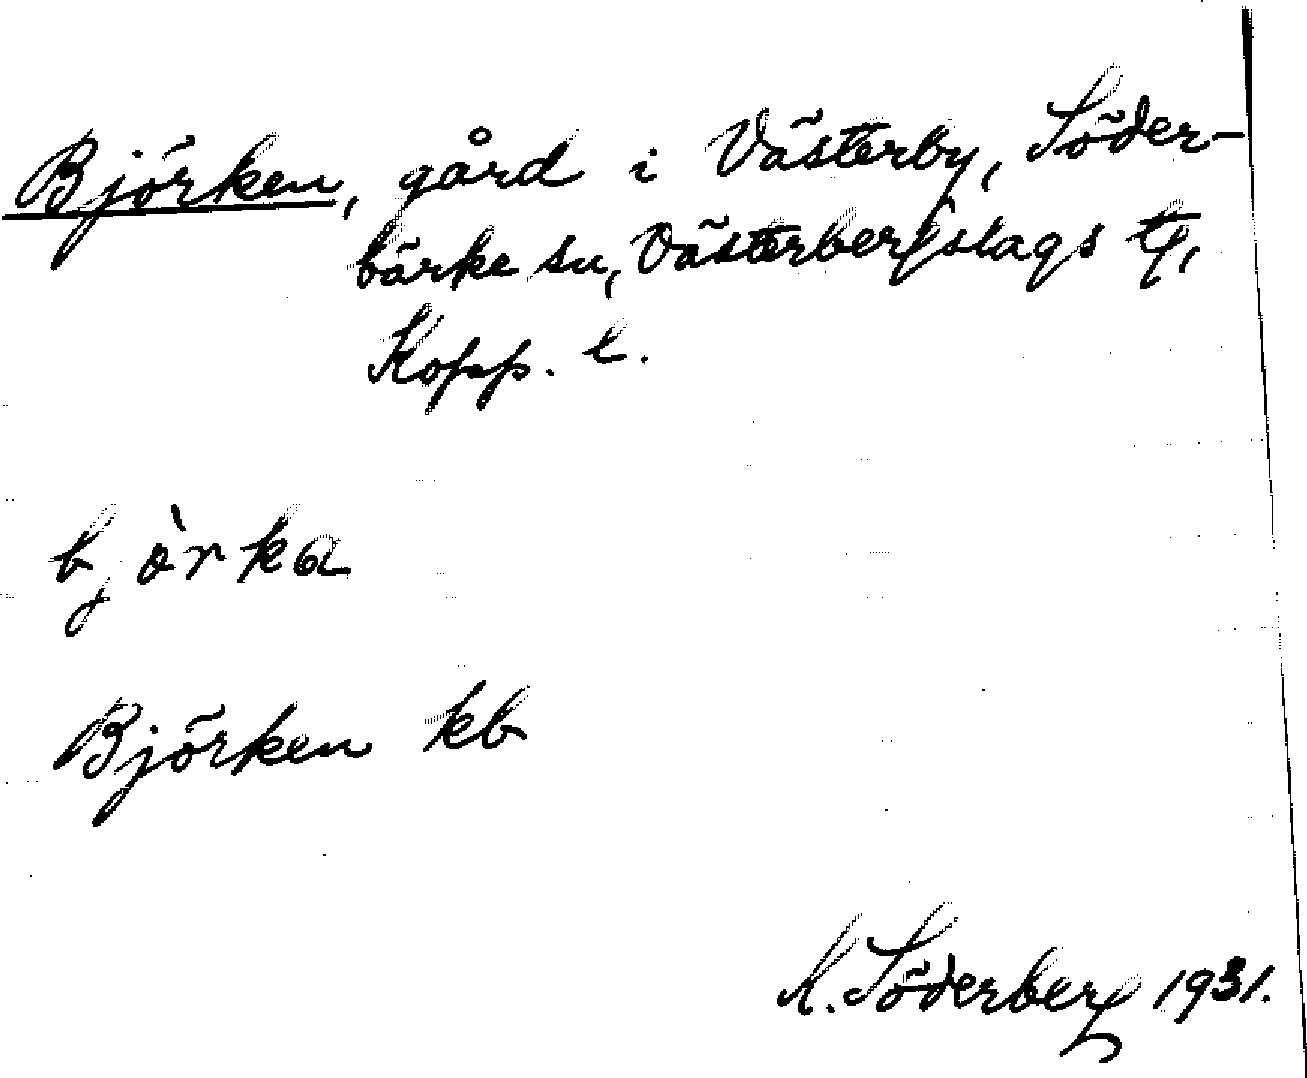 Björken, gård i Västerby, Söder-
bärke sn, Västerbergslags tg,
Kopp. l.
bjòrka
Björken kb
K. Söderberg 1931.